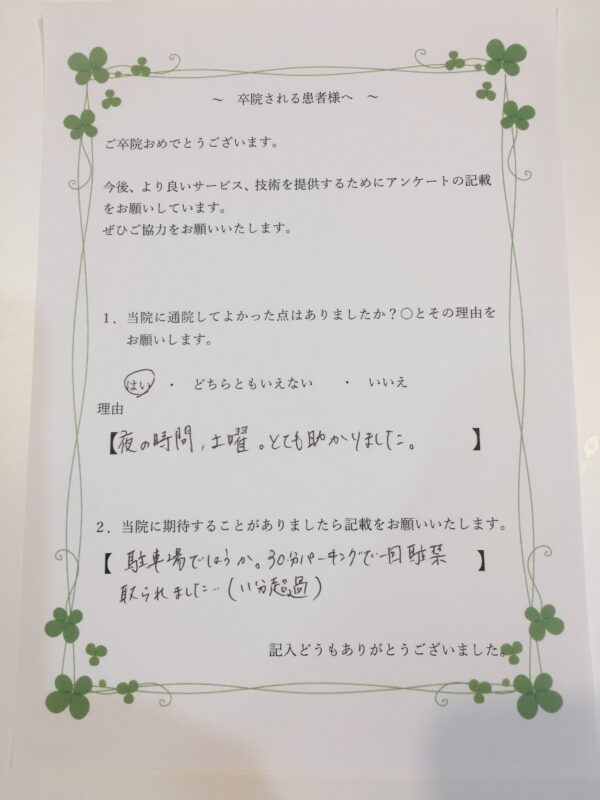 ～ 卒院される患者様へ ～
ご卒院おめでとうございます。
今後、より良いサービス、技術を提供するためにアンケートの記載
をお願いしています。
ぜひご協力をお願いいたします。
１．当院に通院してよかった点はありましたか？○とその理由を
お願いします。
はい ・ どちらともいえない ・ いいえ
理由
【夜の時間，土曜。とても助かりました。 】
２．当院に期待することがありましたら記載をお願いいたします。
【 駐車場でしょうか。30分パーキングで一回駐禁 】
取られました‥(11分超過)
記入どうもありがとうございました。